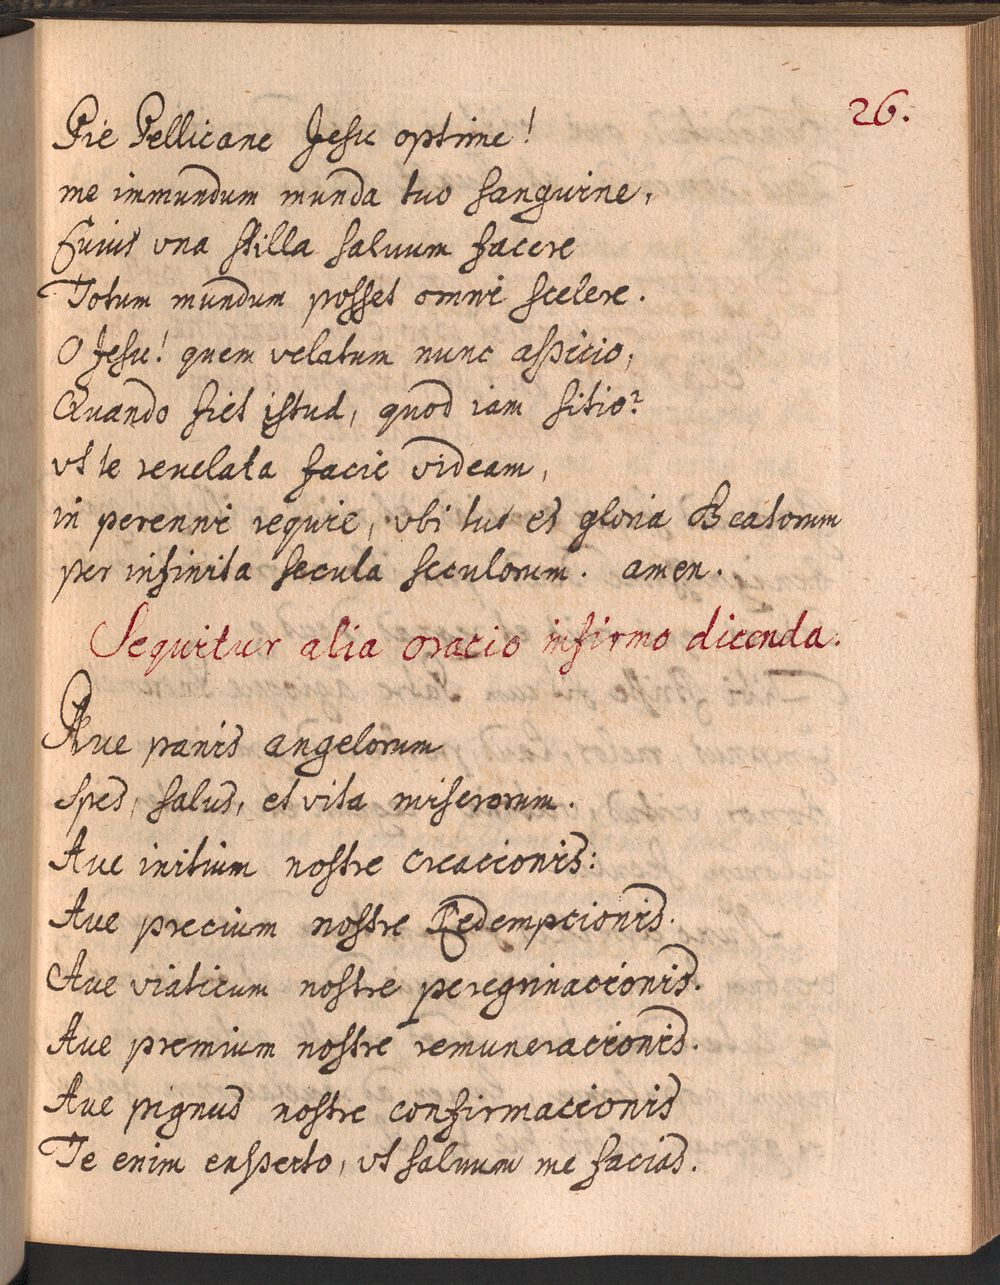 26.
Pie Pellicane Jesu optime!
me immundum munda tuo sanguine,
Cuius vna stilla saluum facere
Totum mundum posset omni scelere.
O Jesu! quem velatum nunc aspicio,
Quando fiet istud, quod iam sitio?
vt te reuelata facie videam,
in perenni requie, vbi tus et gloria Beatorum
per infinita secula seculorum. amen.
Sequitur alia oracio infirmo dicenda.
Aue panis angelorum
spes, salus, et vita miserorum.
Aue initium nostre creacionis:
Aue precium nostre Redempcionis.
Aue viaticum nostre peregrinacionis.
Aue premium nostre remuneracionis.
Aue pignus nostre confirmacionis
Te enim exspecto, vt saluum me facias.